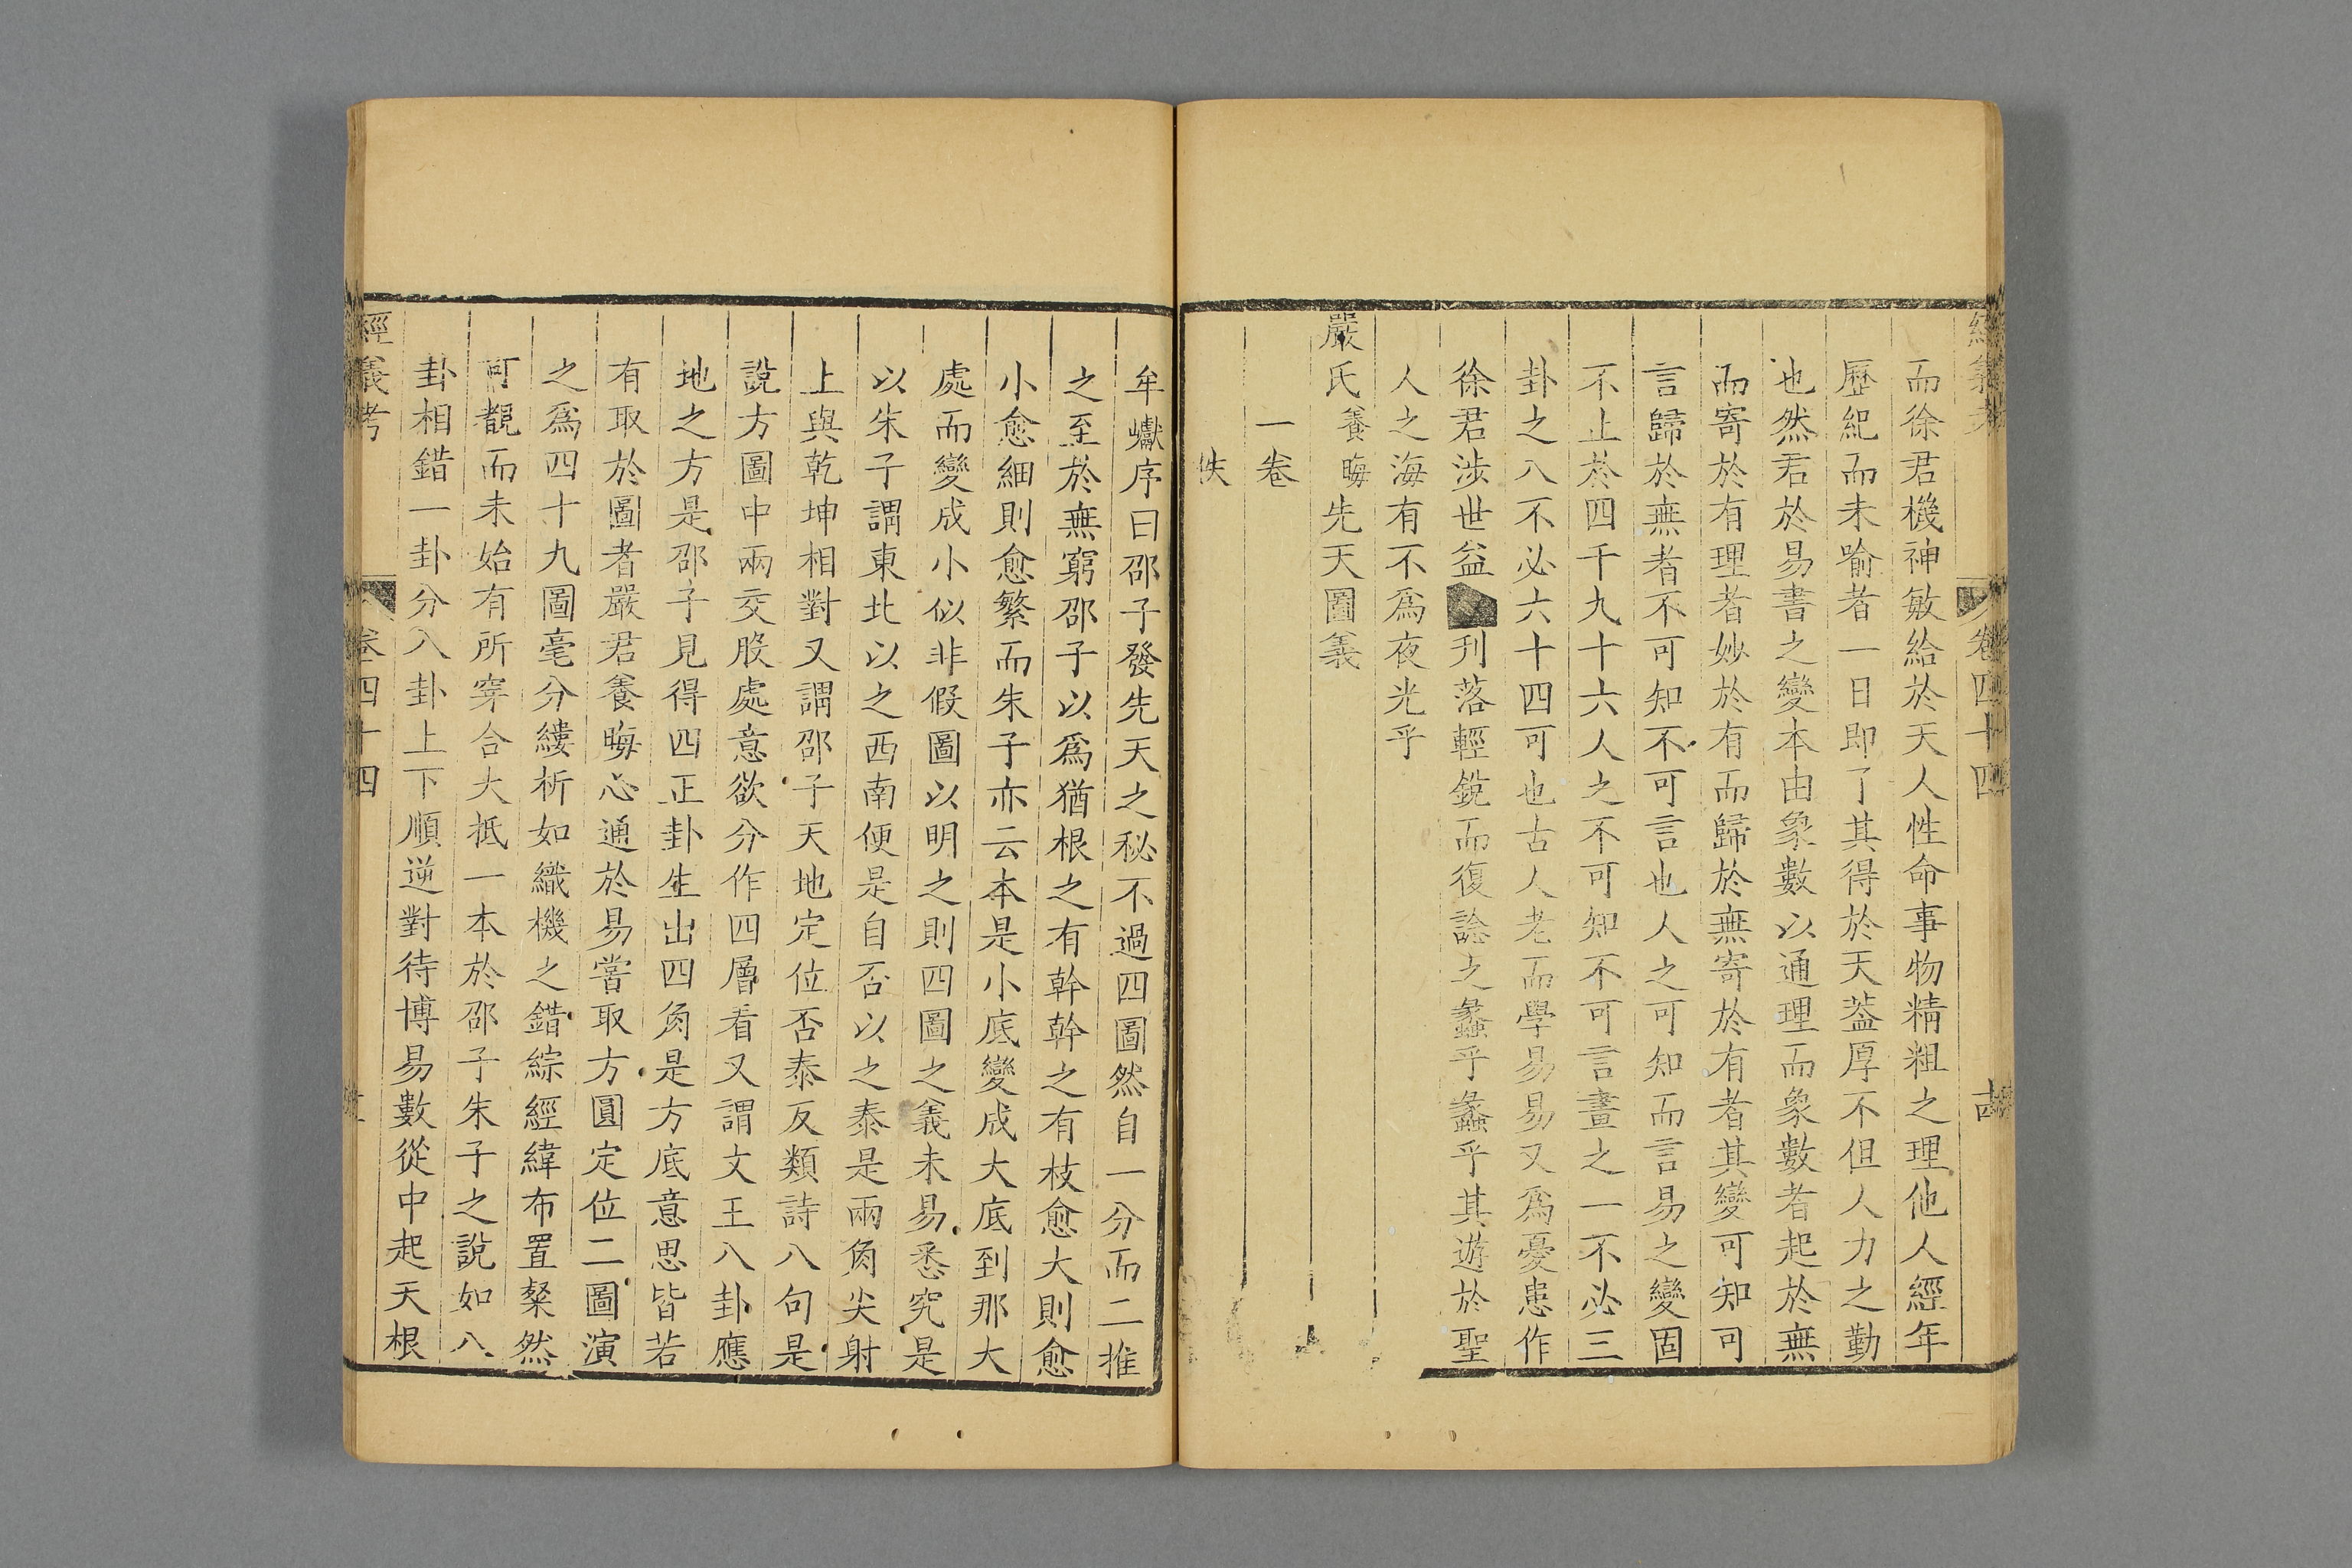 經義考
卷四十四
古
而徐君機神敏給於天人性命事物精粗之理他人經年
歷紀而未喻者一日即了其得於天葢厚不但人力之勤
也然君於易書之變本由象數以通理而象數者起於無
而寄於有理者妙於有而歸於無寄於有者其變可知可
言歸於無者不可知不可言也人之可知而言易之變固
不止於四千九十六人之不可知不可言畫之一不必三
卦之八不必六十四可也古人老而學易易又為憂患作
徐君涉世益刋落輕銳而復諗之蠡乎蠡乎其遊於聖
人之海有不為夜光乎
嚴氏養晦先天圖義
一卷
佚
牟巘序曰邵子發先天之秘不過四圖然自一分而二推
之至於無窮邵子以為猶根之有幹幹之有枝愈大則愈
小愈細則愈繁而朱子亦云本是小底變成大底到那大
處而變成小似非假圖以明之則四圖之義未易悉究是
以朱子謂東北以之西南便是自否以之泰是兩角尖射
上與乾坤相對又謂邵子天地定位否泰反類詩八句是
說方圖中兩交股處意欲分作四層看又謂文王八卦應
地之方是邵子見得四正卦生出四角是方底意思皆若
有取於圖者嚴君養晦心通於易嘗取方圓定位二圖演
之為四十九圖毫分縷析如織機之錯綜經緯布置粲然
可覩而未始有所穿合大抵一本於邵子朱子之說如八
卦相錯一卦分八卦上下順逆對待博易數從中起天根
經義考
卷四十四